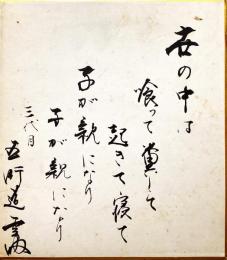 世の中は
喰って糞して
起きて寝て
子が親になり
子が親になり
三代目